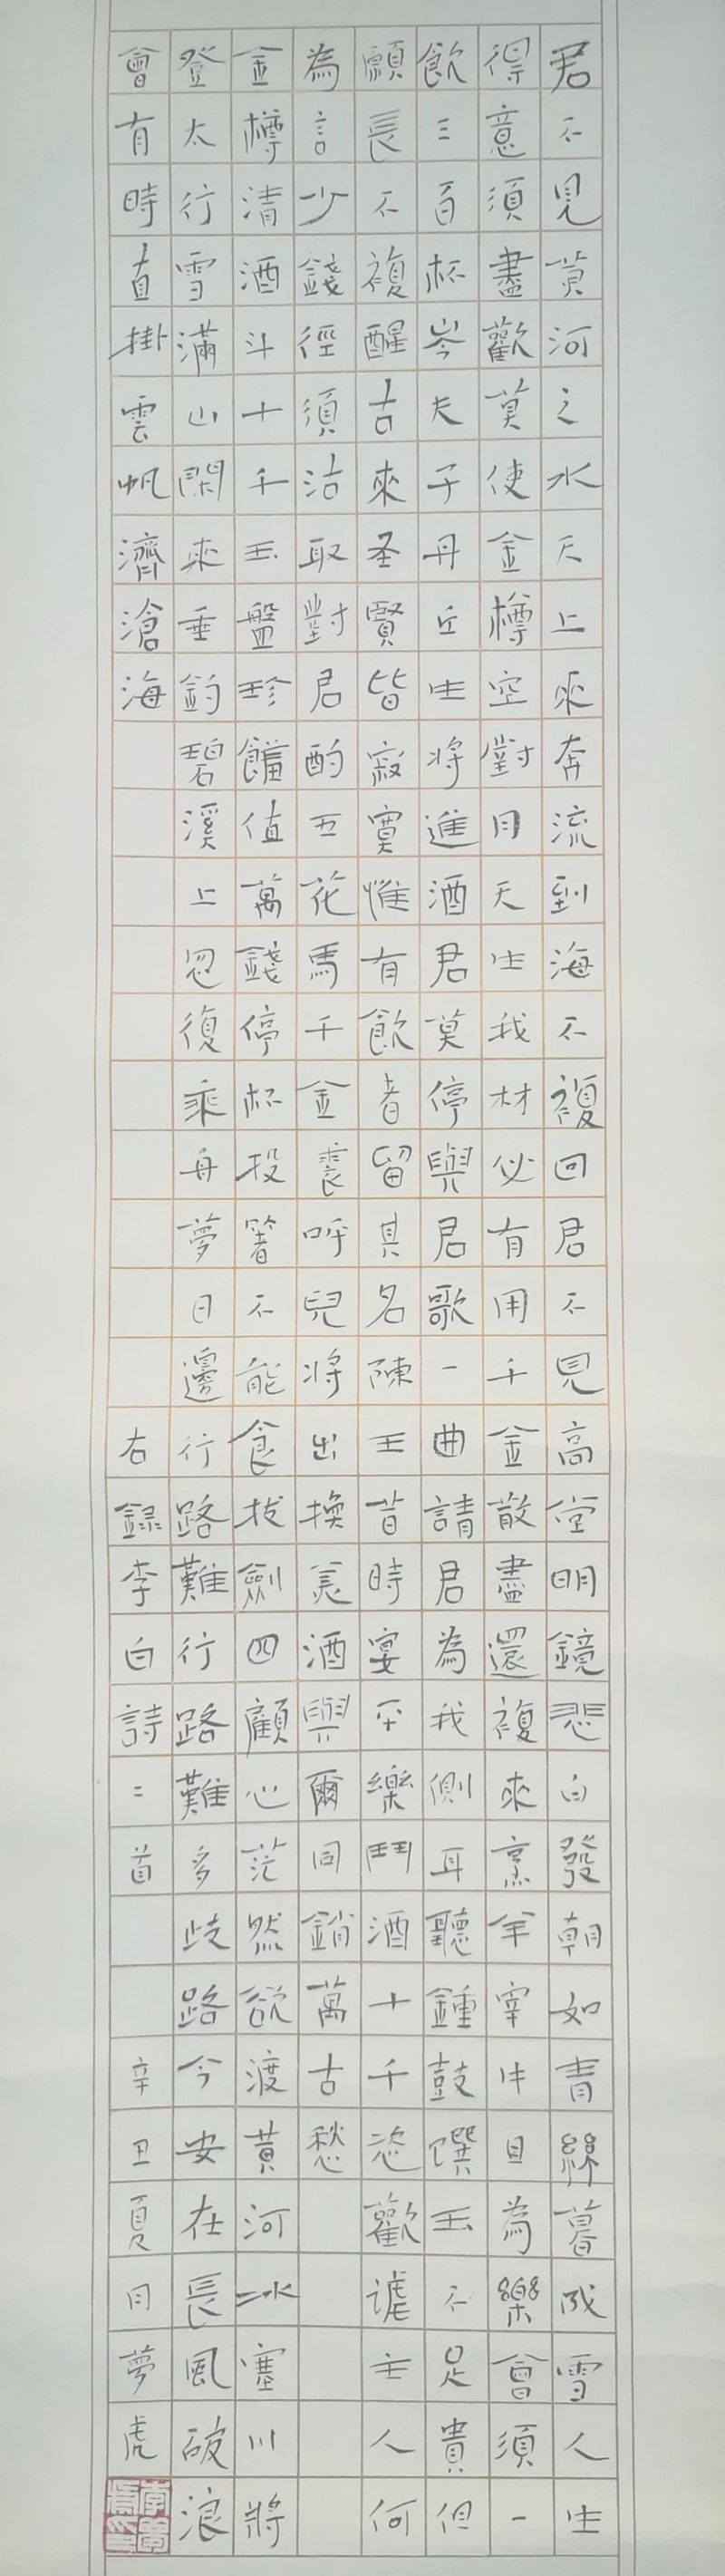 君不見黃河之水天上來奔流到海不複回君不見高堂明鏡悲白發朝如青絲暮成雪人生
得意須盡歡莫使金樽空對月天生我材必有用千金散盡還複來烹羊宰牛且為樂會須一
飲三百杯岑夫子丹丘生將進酒君莫停與君歌一曲請君為我側耳聽鍾鼓饌玉不足貴但
願長不複醒古來圣賢皆寂寞惟有飲者留其名陳王昔時宴平樂鬥酒十千恣歡謔主人何
為言少錢徑須沽取對君酌五花馬千金裘呼兒將出換美酒與爾同銷萬古愁
金樽清酒斗十千玉盤珍饈值萬錢停杯投箸不能食拔劍四顧心茫然欲渡黃河冰塞川將
登太行雪滿山閑來垂釣碧溪上忽復乘舟夢日邊行路難行路難多歧路今安在長風破浪
會有時直掛雲帆濟滄海
右録李白詩二首
辛丑夏月夢虎